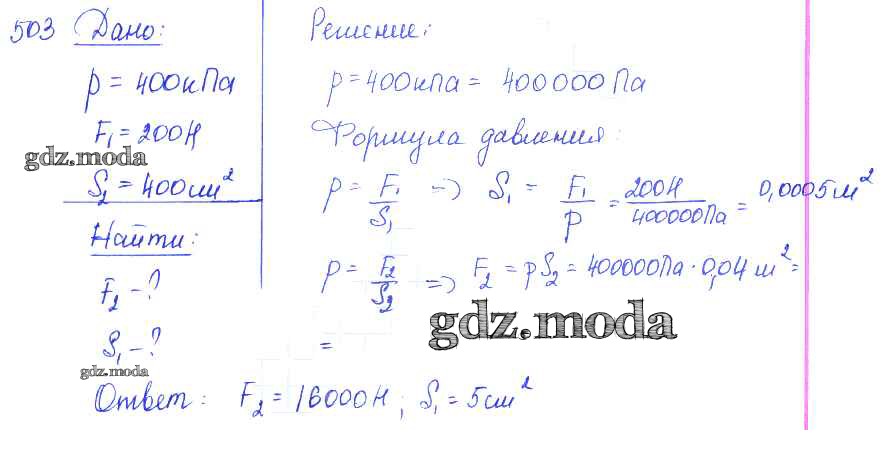 503 Дано:
p = 400кПа
F₁ = 200Н
gdz.moda
S₂ = 400см²
Найти:
F₂ - ?
S₁ - ?
gdz.moda
Решение:
p = 400кПа = 400000 Па
Формула давления:
p = F₁/S₁ => S₁ = F₁/p = 200Н/400000Па = 0,0005м²
p = F₂/S₂ => F₂ = pS₂ = 400000Па · 0,04 м² =
gdz.moda
=
Ответ: F₂ = 16000Н; S₁ = 5см²